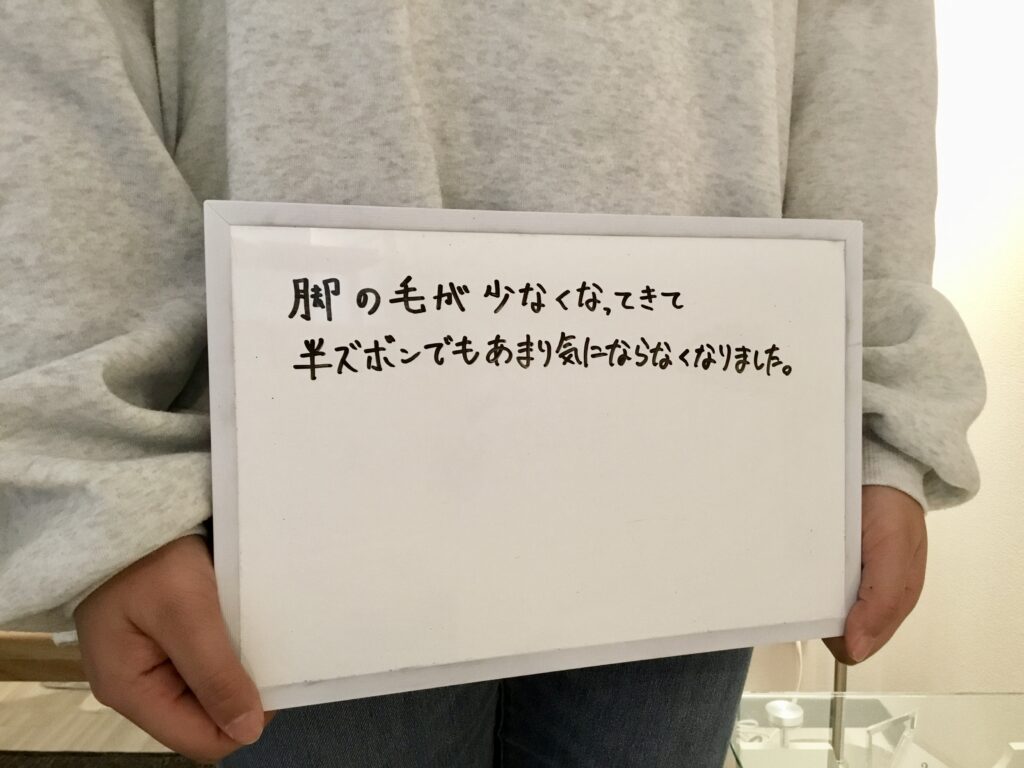 脚の毛が少なくなってきて
半ズボンでもあまり気にならなくなりました。